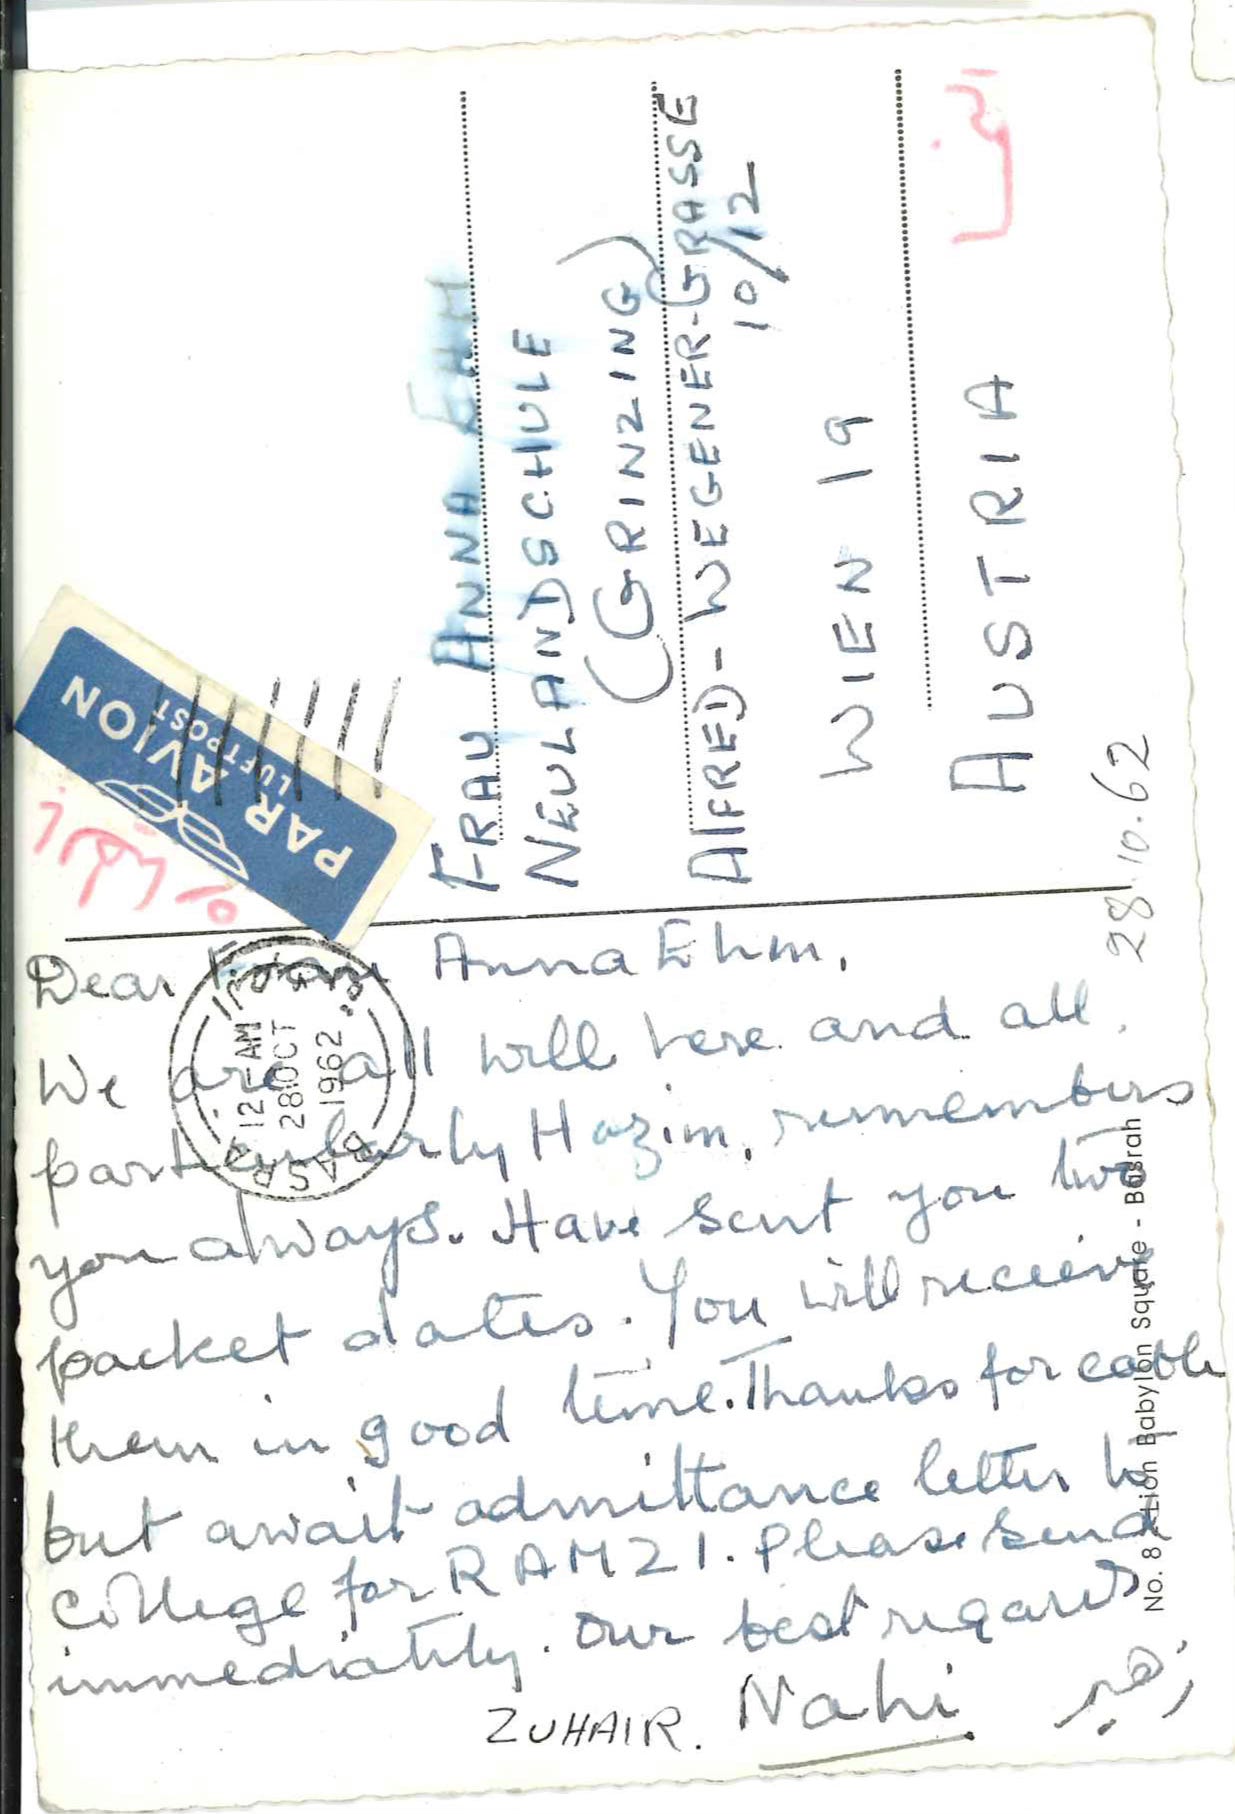 Dear Frau Anna Ehm,
We are all well here and all,
particularly Hazim, remembers
you always. Have sent you two
packet dates. You will recieve
them in good time. Thanks for cable
but await admittance letter to
College for RAMZI. Please send
immediately. Our best regards
ZUHAIR. Nahi زهير
28.10.62
No. 8 Lion Babylon Square - Basrah
BASRA
12-AM
28 OCT
1962
PAR AVION
LUFTPOST
FRAU ANNA EHM
NEULANDSCHULE
(GRINZING)
ALFRED-WEGENER-GRASSE
10/12
WIEN 19
AUSTRIA